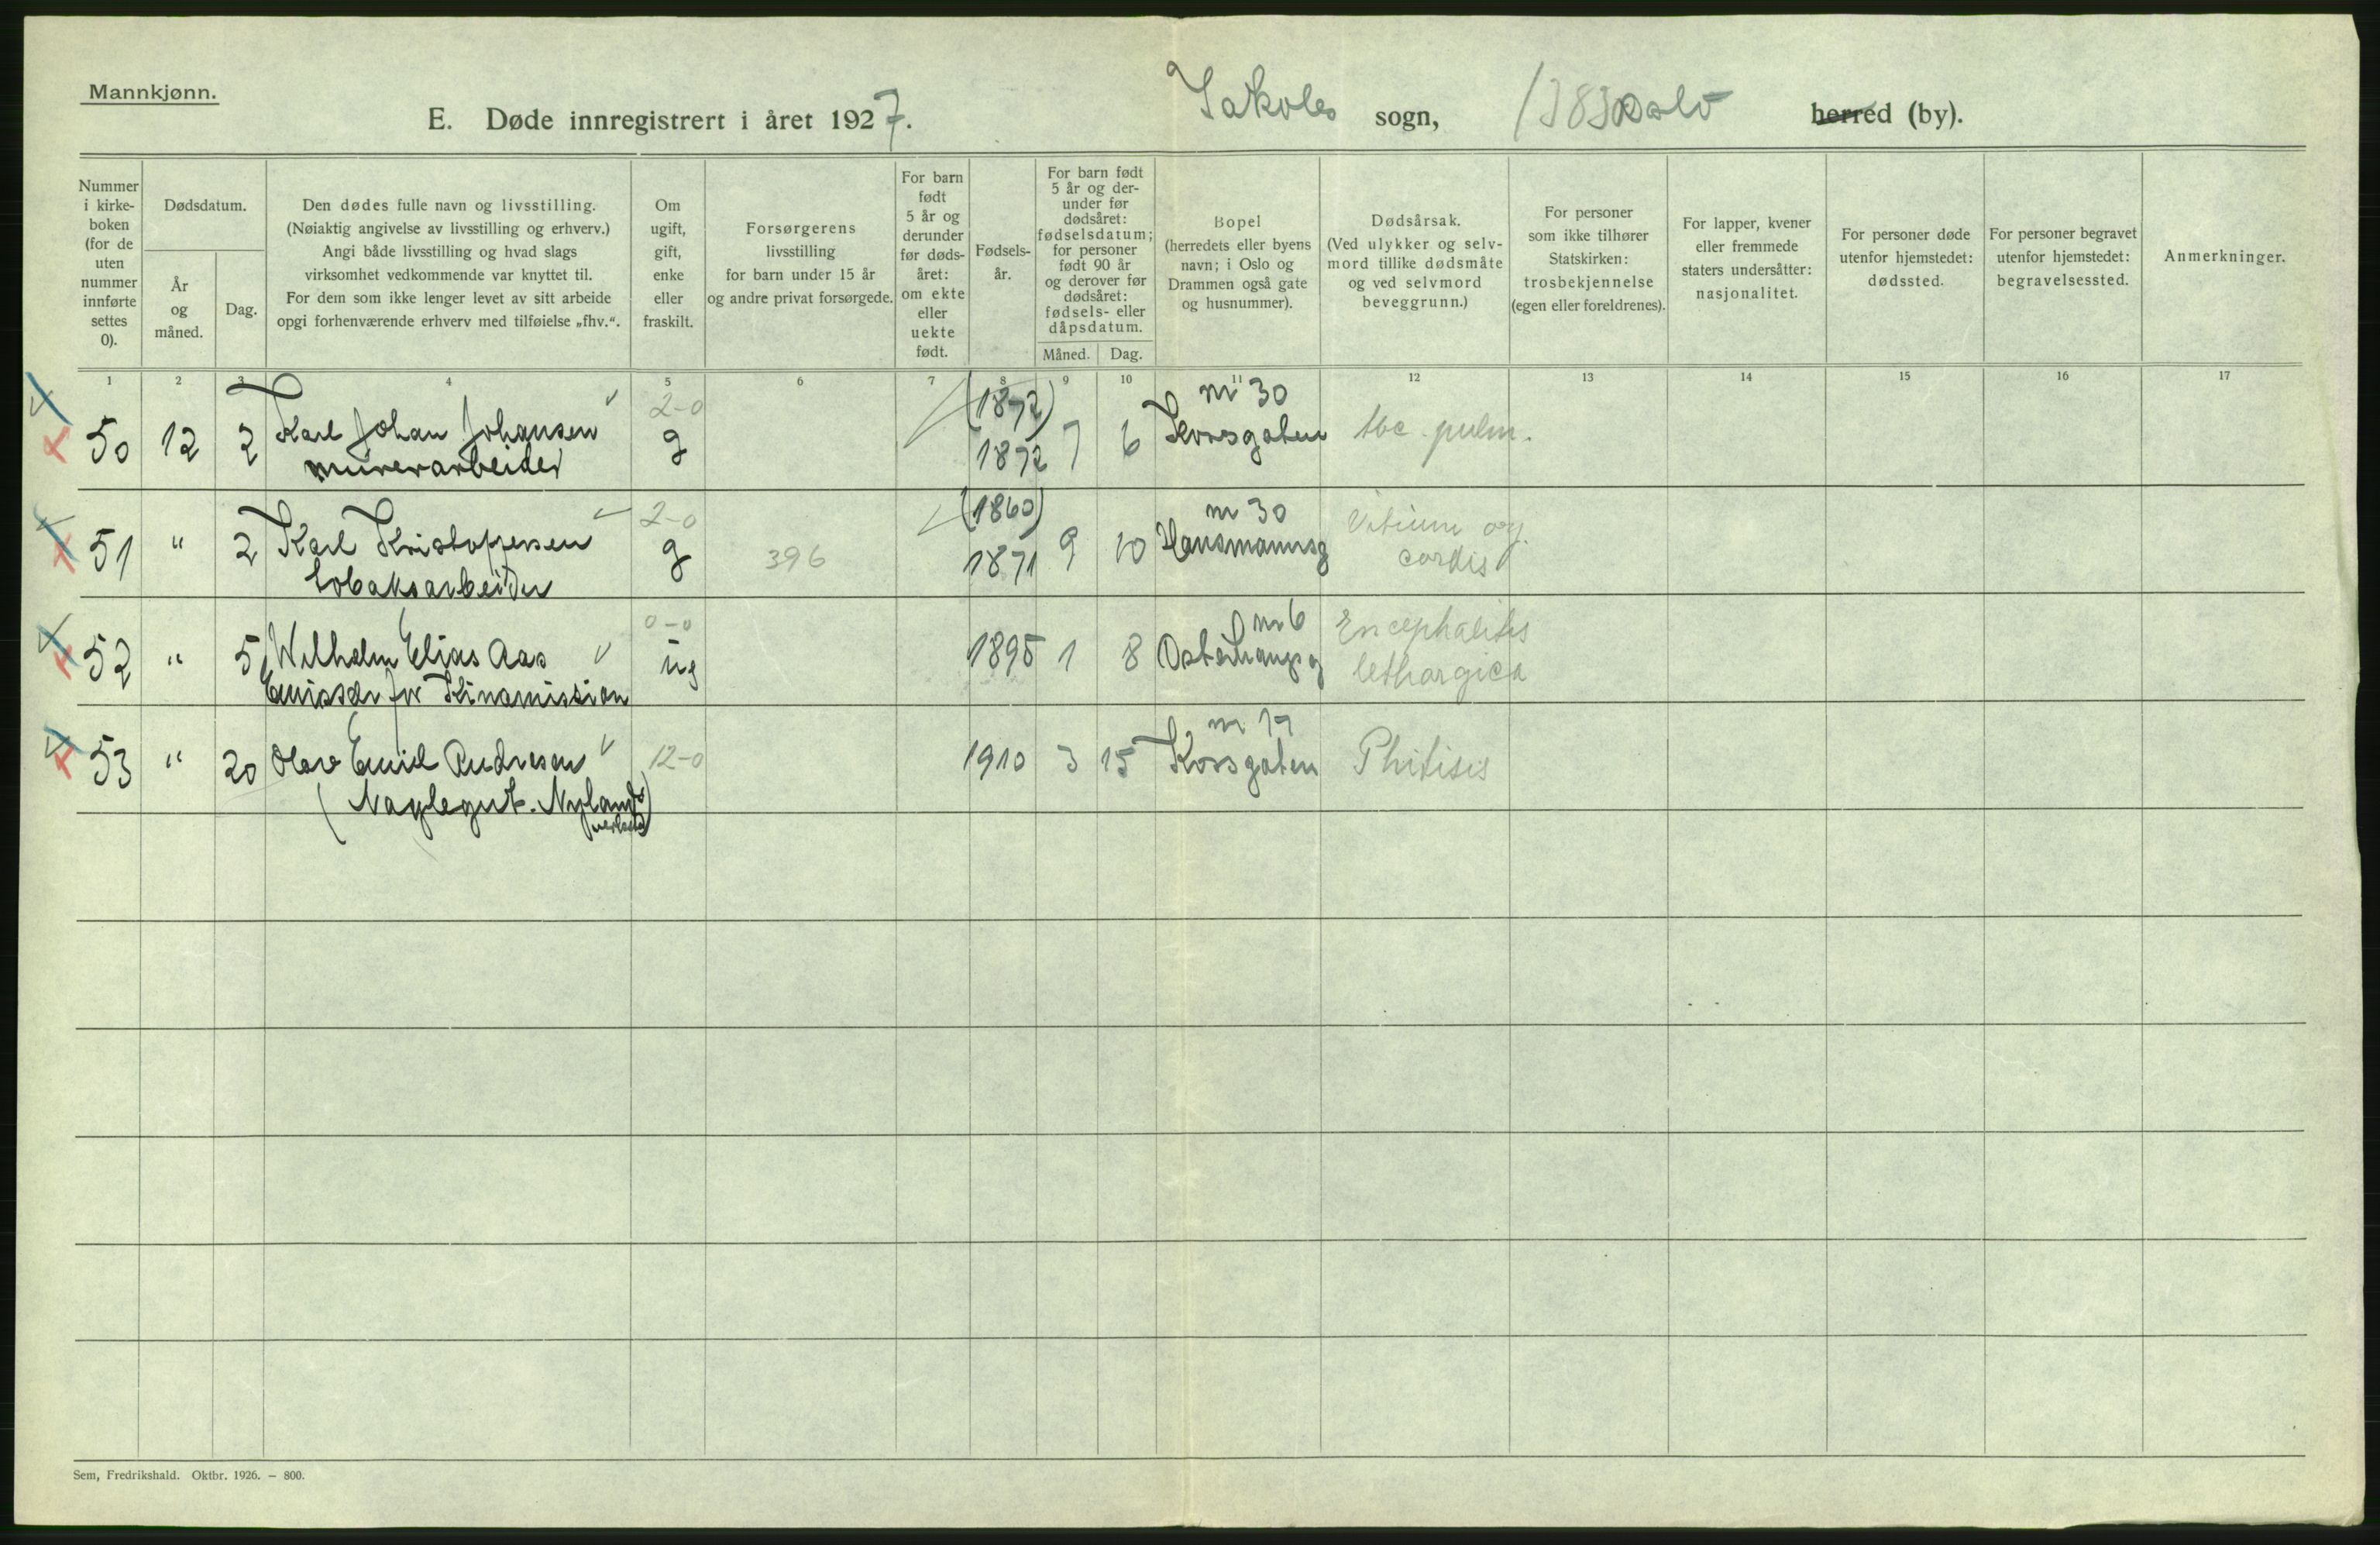 Mannkjønn.
E. Døde innregistrert i året 1927. Jakobs sogn, Oslo herred (by).
Nummer i kirke-boken (for de uten nummer innførte settes 0).
Dødsdatum.
År og måned.
Dag.
Den dødes fulle navn og livsstilling.
(Nøiaktig angivelse av livsstilling og erhverv.)
Angi både livsstilling og hvad slags
virksomhet vedkommende var knyttet til.
For dem som ikke lenger levet av sitt arbeide
opgi forhenværende erhverv med tilføielse „fhv.“.
Om ugift, gift, enke eller fraskilt.
Forsørgerens
livsstilling
for barn under 15 år
og andre privat forsørgede.
For barn født 5 år og derunder før døds-året: om ekte eller uekte født.
Fødsels-år.
For barn født 5 år og der-under før dødsåret: fødselsdatum; for personer født 90 år og derover før dødsåret: fødsels- eller dåpsdatum.
Måned. Dag.
Bopel
(herredets eller byens
navn; i Oslo og
Drammen også gate
og husnummer).
Dødsårsak.
(Ved ulykker og selv-
mord tillike dødsmåte
og ved selvmord
beveggrunn.)
For personer
som ikke tilhører
Statskirken:
trosbekjennelse
(egen eller foreldrenes).
For lapper, kvener
eller fremmede
staters undersåtter:
nasjonalitet.
For personer døde
utenfor hjemstedet:
dødssted.
For personer begravet
utenfor hjemstedet:
begravelsessted.
Anmerkninger.
1 2 3 4 5 6 7 8 9 10 11 12 13 14 15 16 17
2-0 (1872) nr 30
50 12 2 Karl Johan Johansen g 1872 7 6 Korsgaten tbc. pulm.
murerarbeider
2-0 (1860) nr 30
51 " 2 Karl Kristofersen g 396 1871 9 10 Hausmannsg Vitium org. cordis
tobaksarbeider
0-0 nr 6
52 " 5 Wilhelm Elias Aas ug 1895 1 8 Osterhausg Encephalitis lethargica
Emissær for Kinamission
nr 17
53 " 20 Olav Emil Andresen 12-0 1910 3 15 Korsgaten Phitisis
(Naglegut. Nylands verksted)
Sem, Fredrikshald. Oktbr. 1926. — 800.